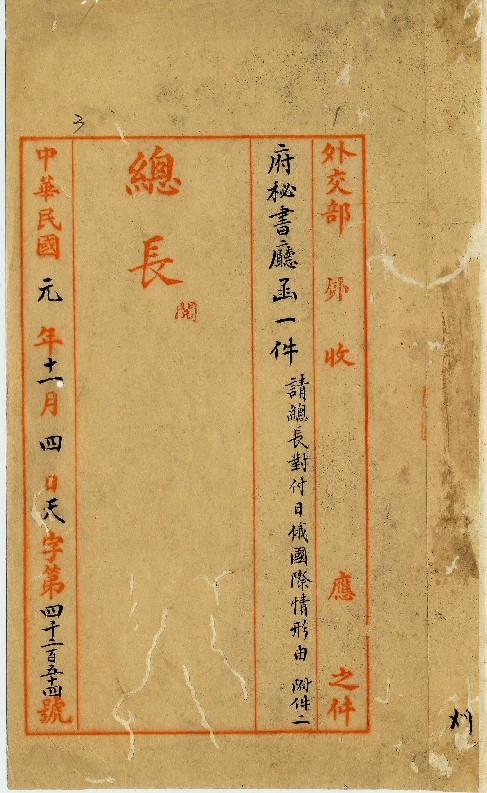 1
3
外交部 收 應 之件
府秘書廳函一件 請總長對付日俄國際情形由 附件二
總長
閱
中華民國元年十一月四日 字第四千二百五十四號